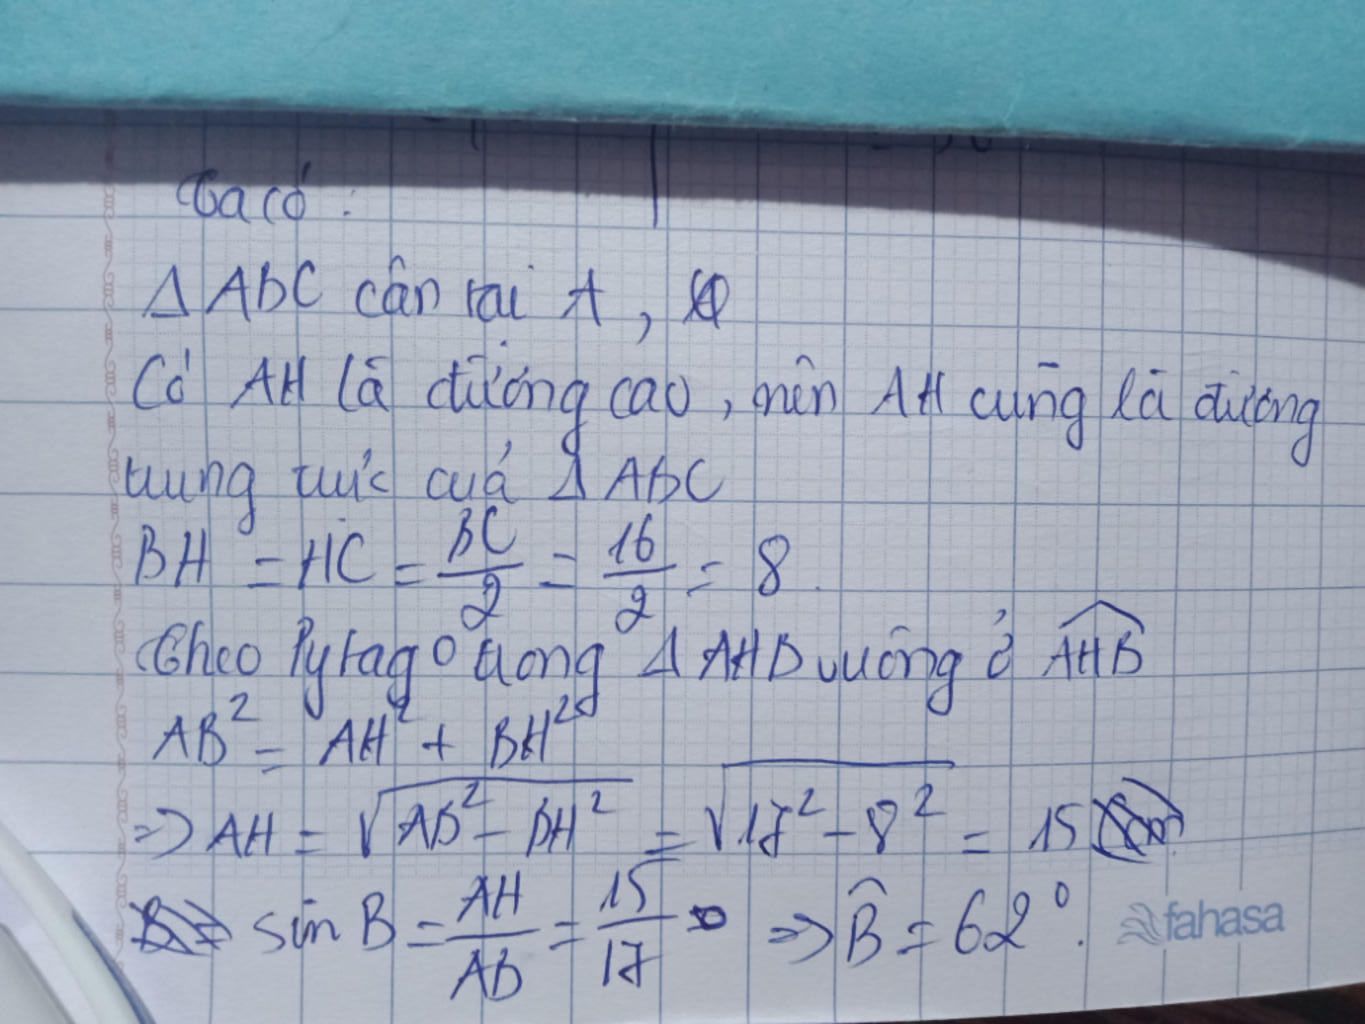 Ta có :
Δ ABC cân tại A ,
Có AH là đường cao , nên AH cũng là đường
trung trực của Δ ABC
BH = HC = BC/2 = 16/2 = 8 .
Theo Pytago trong Δ AHB vuông ở AHB
AB² = AH² + BH²
=> AH = √(AB² - BH²) = √(17² - 8²) = 15
sin B = AH/AB = 15/17 => B̂ = 62° .
fahasa